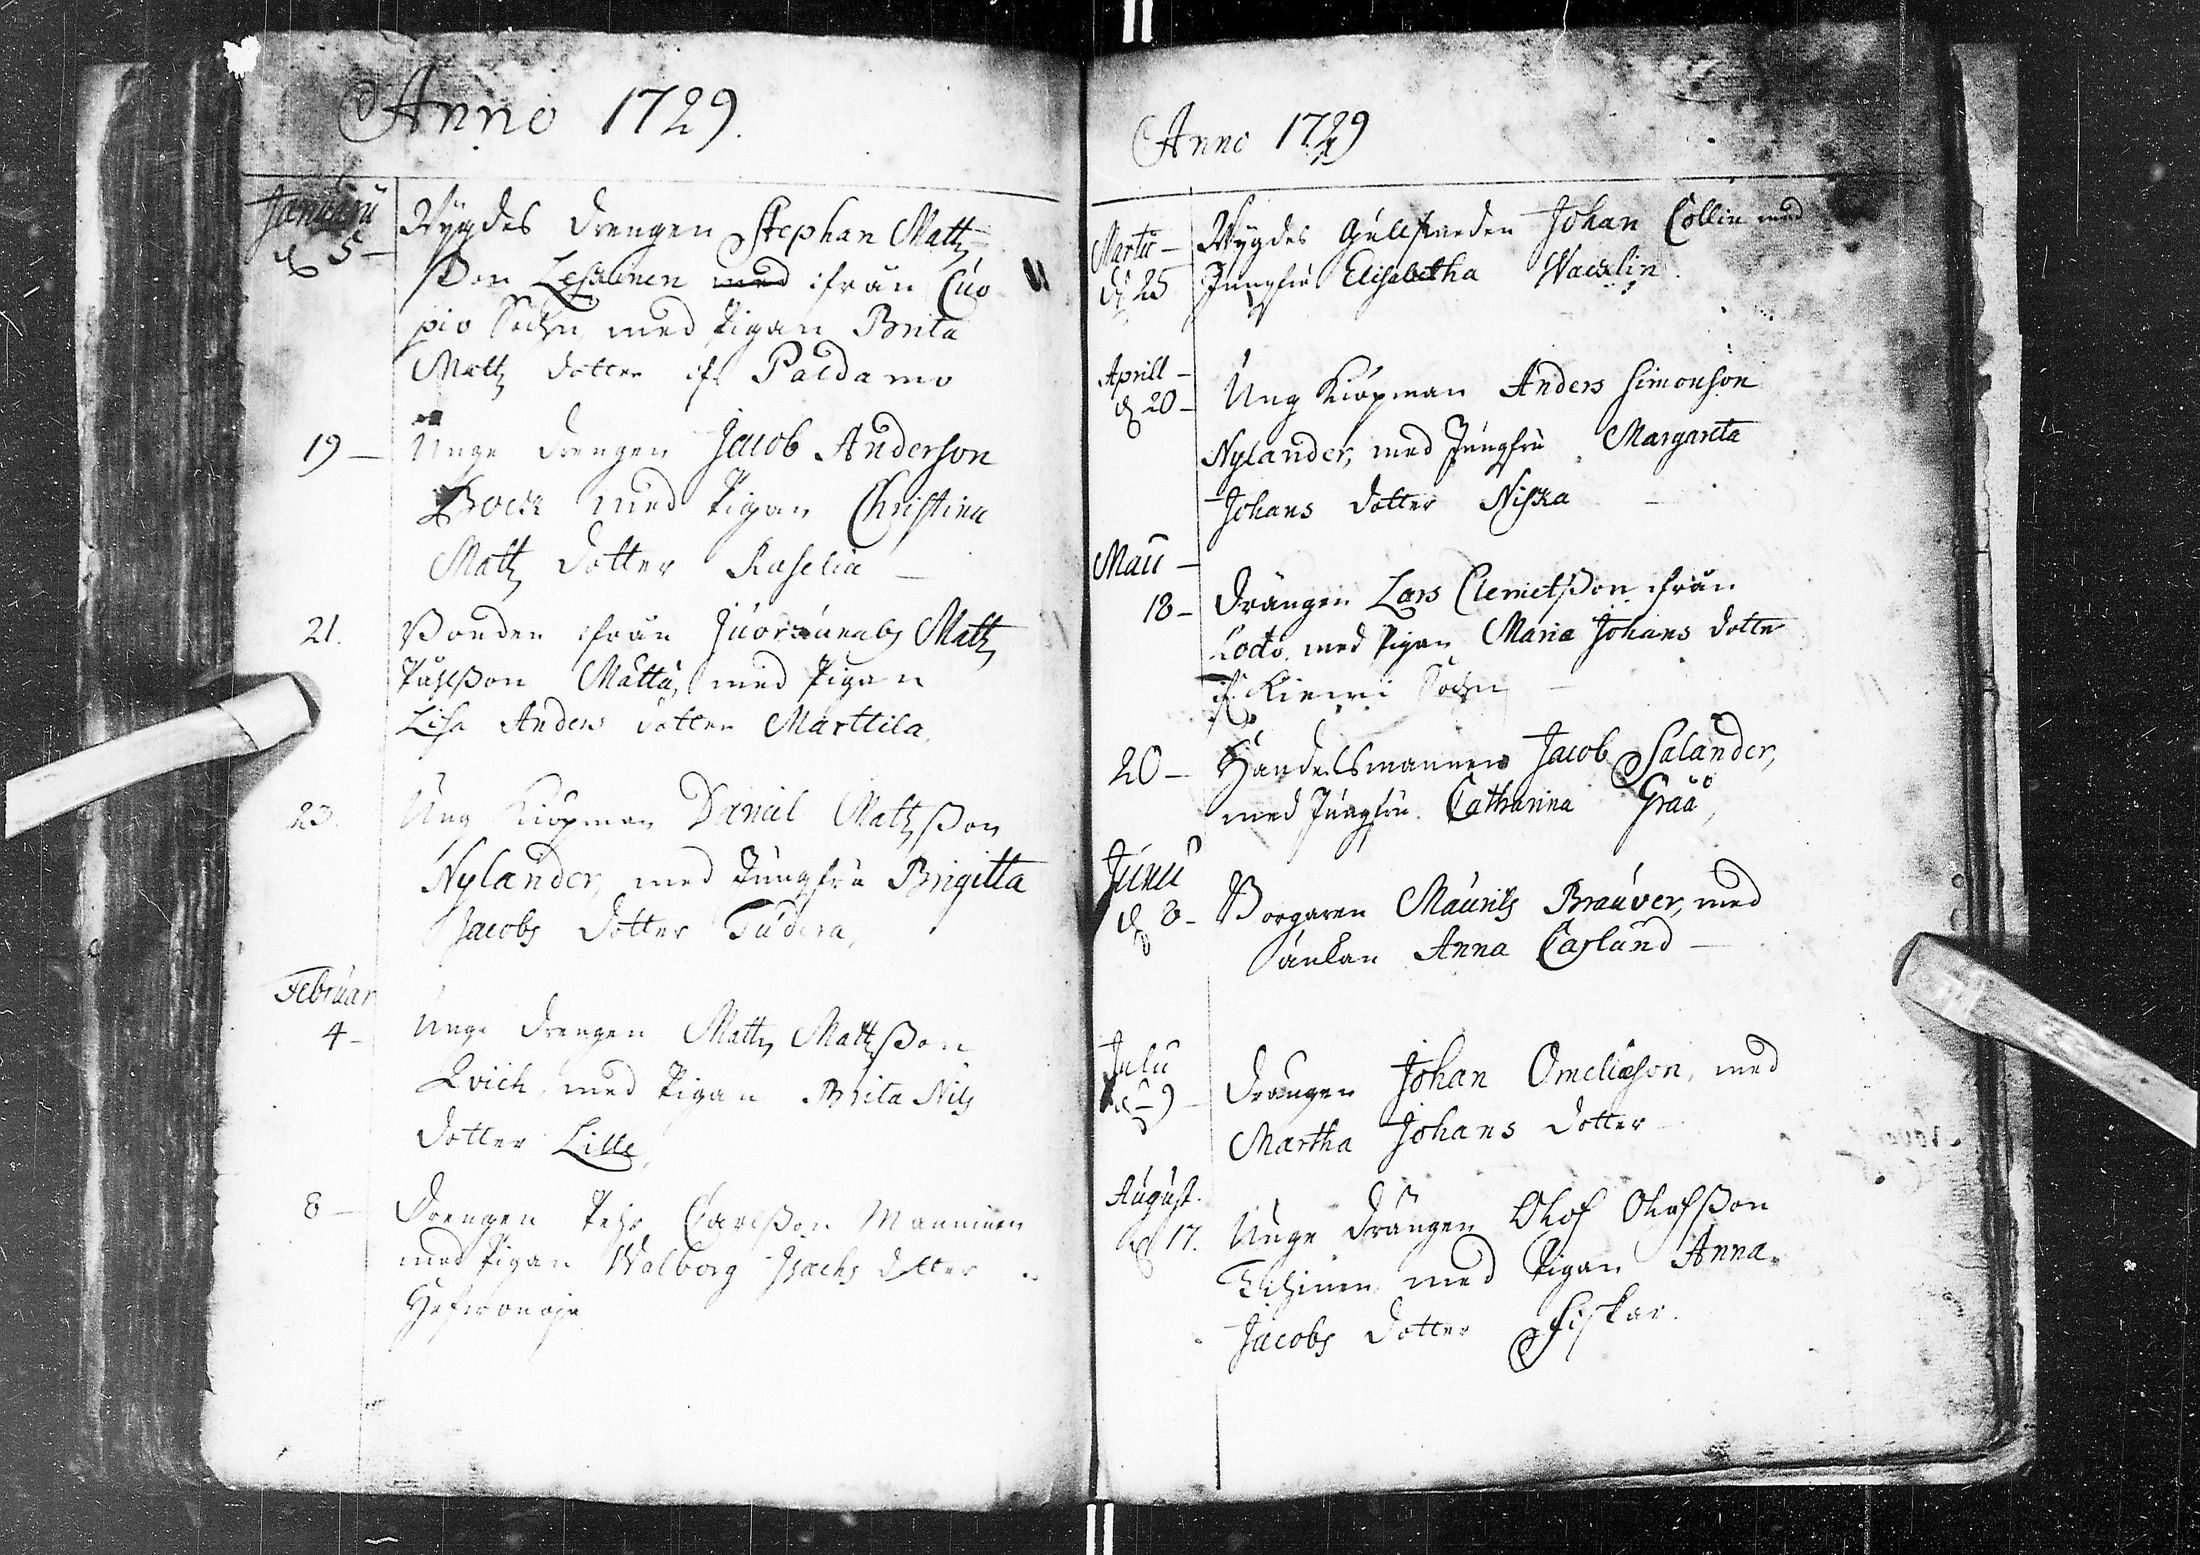 Anno 1729.
Januarii
d 5 – Wygdes drengen Stephan Matts
son ifrån Cuo
pio Sochn med Pigan Brita
Matts dotter ifr Paldamo
19 – Unge drengen Jacob Anderson
Bock med Pigan Christina
Matts dotter Raselia –
21. Bonden ifrån Matts
Påhlsson Matta, med Pigan
Lisa Anders dotter Marttila.
23. Ung Kiöpman Daniel Matsson
Nylander, med Jungfru Brigitta
Jacobs dotter Tudera,
Februar
4 – Unge drengen Matts Mattsson
Qvick, med Pigan Brita Nils
dotter Lille,
8 – Drengen Pehr Carlsson Manninen
med Pigan Walborg Isachs dotter
Anno 1729
Martii – Wygdes Gullsmeden Johan Collin med
d 25 Jungfru Elisabetha Wacklin.
Aprill –
d 20 – Ung Kiöpman Anders Simonson
Nylander, med Jungfru Margareta
Johans dotter Niska –
Maii –
18 – Drängen Lars Clemetsson ifrån
med Pigan Maria Johans dotter
if. Kiemi Sochn –
20 – Handelsmannen Jacob Salander,
med Jungfru Catharina Gråå,
Junii
d 8 – Borgaren Maurits Brauver, med
änkan Anna Caslund –
Julii
d 9 – Drängen Johan Omeliæson, med
Martha Johans dotter –
August.
d 17. Unge drängen Olof Olofsson
med Pigan Anna
Jacobs dotter Fiskar.